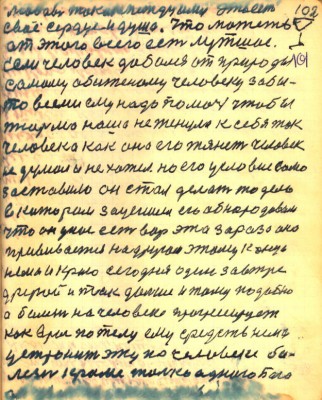 102
своё сердце и душа. Что может
от этого всего есть лутшае.
Если человек добался от природы
самому обиженому человеку забы-
то всеми ему надо помоч чтобы
тюрма наша не тенула к себя так
человека как она его тянет человек
не думал и не хотел но его условие само
заставило он стал делат то дело
в котором зацепила его обнородовали
что он уже есть вор эта зараза она
прививается на другая этому конца
нема и краю сегодня один завтра
другой и так дальше и тому подобно
а болезн на человека прогресирует
как враг по телу ему средств нема
устронит эту на человеке бо-
лезн кроме только одного Бога